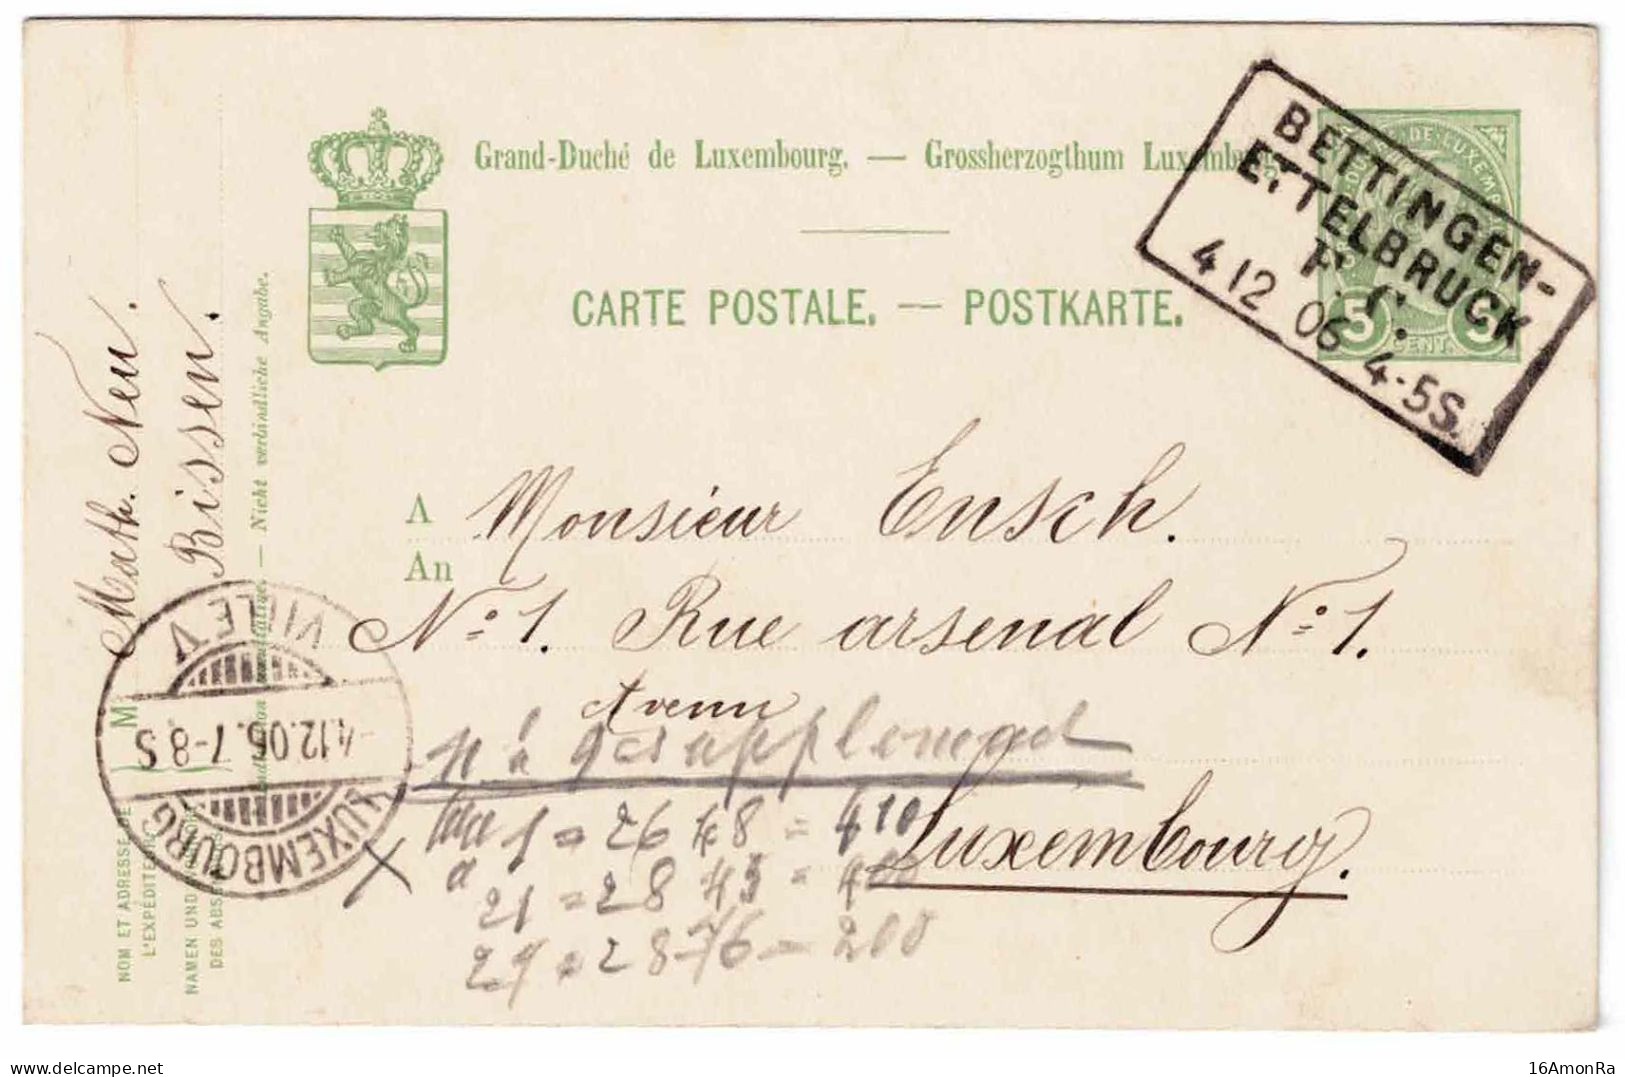 Grand-Duché de Luxembourg. — Grossherzogthum Luxemburg.
CARTE POSTALE. — POSTKARTE.
BETTINGEN-
ETTELBRUCK
4 12 06 4-5S.
5 CENT. 5
Math. Neu.
Bissen.
Nicht verbindliche Angabe.
M
NOM ET ADRESSE DE
L'EXPÉDITEUR
NAMEN UND
DES ABS
LUXEMBOURG
VILLE V
4.12.06.7-8S
A Monsieur Ensch.
An
No 1. Rue arsenal No 1.
Luxembourg.
1 = 26 48 = 410
a 21 = 28 43 = 400
29 = 28 76 = 200
16AmonRa